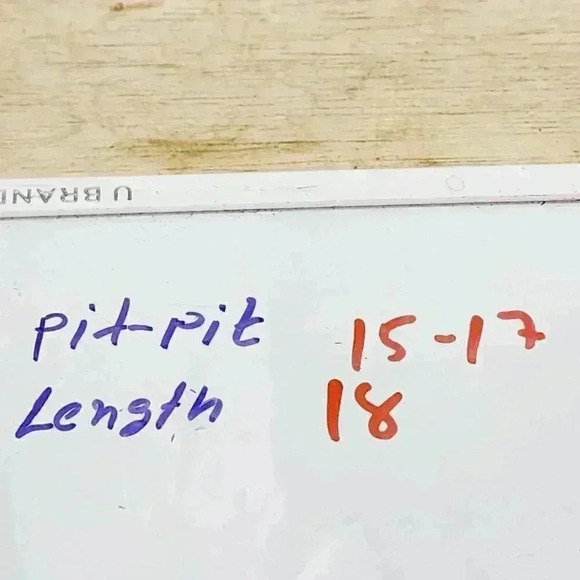 U BRAN
pit-pit 15-17
Length 18